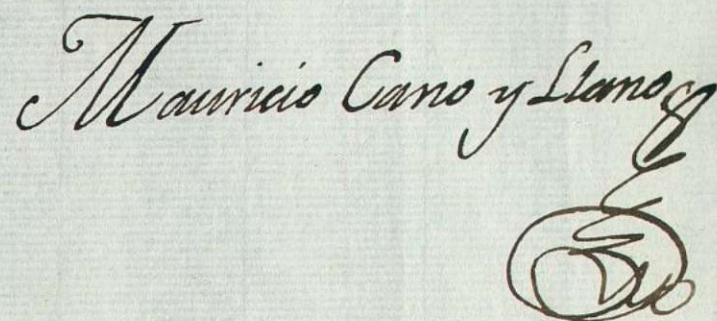 Mauricio Cano y Llano